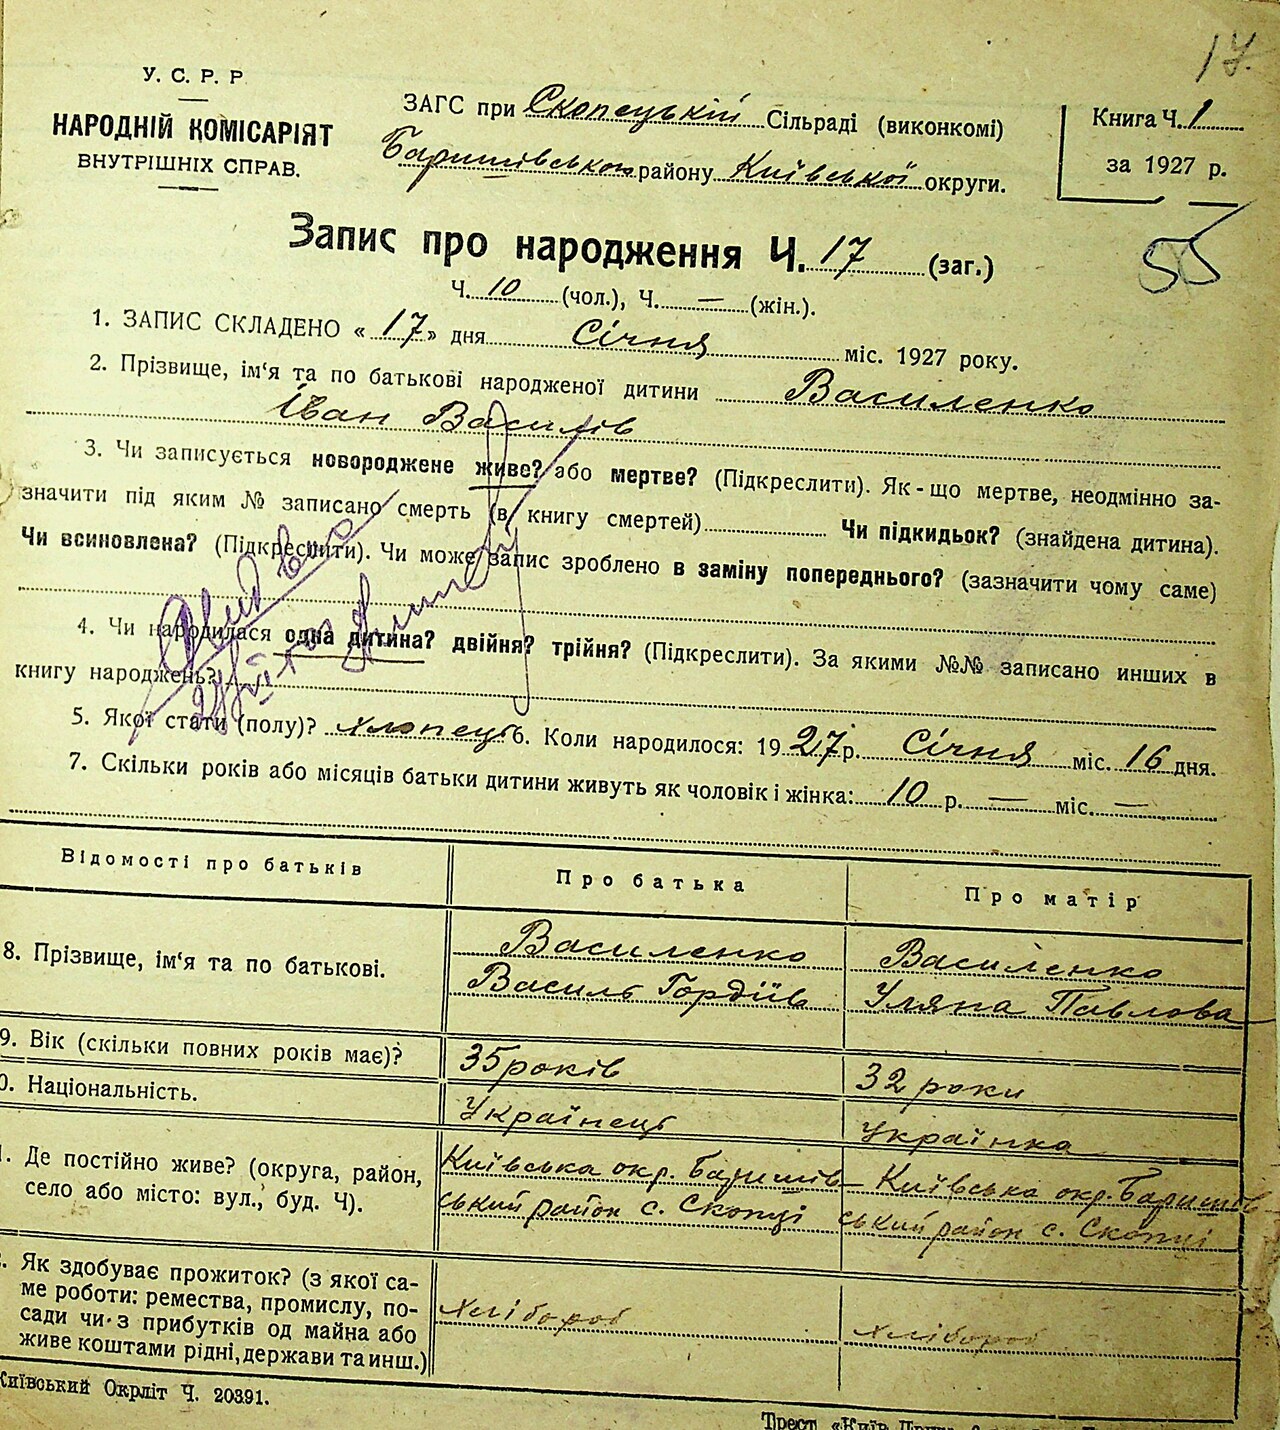 17.
У. С. Р. Р
НАРОДНІЙ КОМІСАРІЯТ
ВНУТРІШНІХ СПРАВ.
ЗАГС при Скопецькій Сільраді (виконкомі)
Баришівського району Київської округи.
Книга Ч. 1
за 1927 р.
55
Запис про народження Ч. 17 (заг.)
Ч. 10 (чол.), Ч. — (жін.).
1. ЗАПИС СКЛАДЕНО « 17 » дня Січня міс. 1927 року.
2. Прізвище, ім'я та по батькові народженої дитини Василенко
Іван Василів
3. Чи записується новороджене живе? або мертве? (Підкреслити). Як-що мертве, неодмінно за-
значити під яким № записано смерть (в книгу смертей) Чи підкидьок? (знайдена дитина).
Чи всиновлена? (Підкреслити). Чи може запис зроблено в заміну попереднього? (зазначити чому саме)
4. Чи народилася одна дитина? двійня? трійня? (Підкреслити). За якими №№ записано инших в
книгу народжень?
5. Якої стати (полу)? хлопець 6. Коли народилося: 1927 р. Січня міс. 16 дня.
7. Скільки років або місяців батьки дитини живуть як чоловік і жінка: 10 р. — міс. —
Відомості про батьків Про батька Про матір
8. Прізвище, ім'я та по батькові. Василенко Василь Гордіїв Василенко Уляна Павлова
9. Вік (скільки повних років має)? 35 років 32 роки
0. Національність. Українець Українка
1. Де постійно живе? (округа, район, Київська окр. Баришів- Київська окр. Баришів-
село або місто: вул., буд. Ч). ський район с. Скопці ський район с. Скопці
. Як здобуває прожиток? (з якої са-
ме роботи: ремества, промислу, по- хлібороб хлібороб
сади чи з прибутків од майна або
живе коштами рідні, держави та инш.)
Київський Окрліт Ч. 20391.
Трест «Київ-Друк»